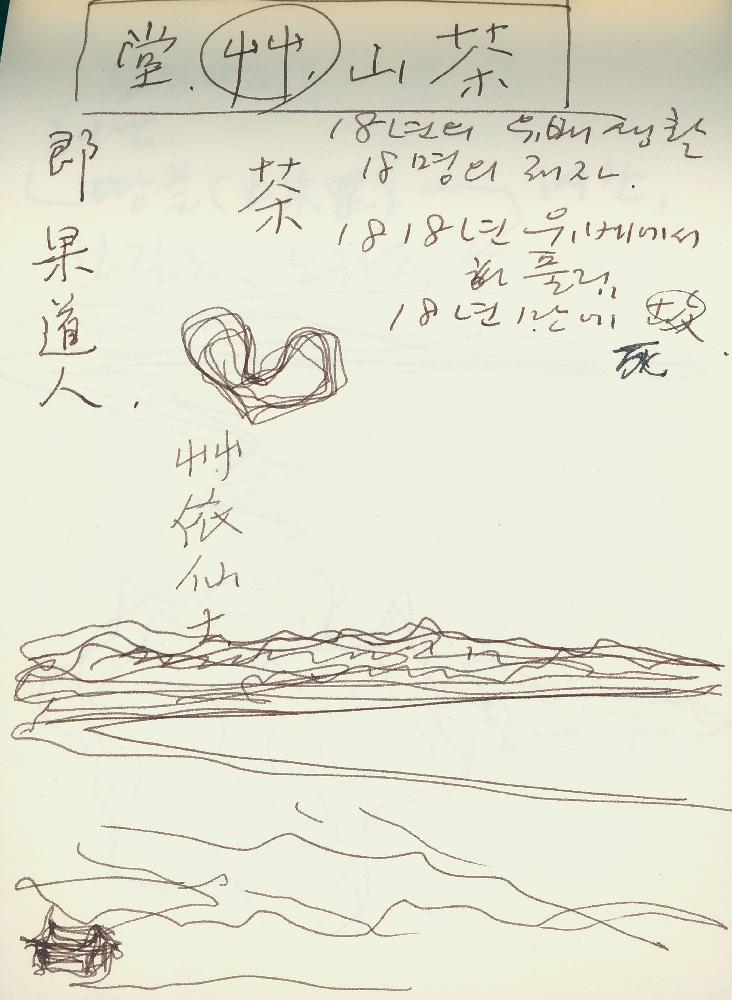 堂. 艸. 山 茶
18년의 유배생활
18명의 제자.
1818년 유배에서
풀림
18년만에 故
死
茶
即果道人.
艸依仙士